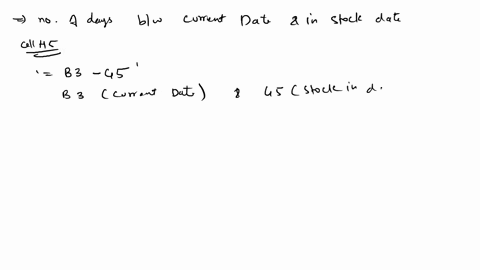 ⇒ no. of days b/w current Date & in stock date
cell H5
'= B3 - G5'
B3 (current Date) & G5 (stock in d.